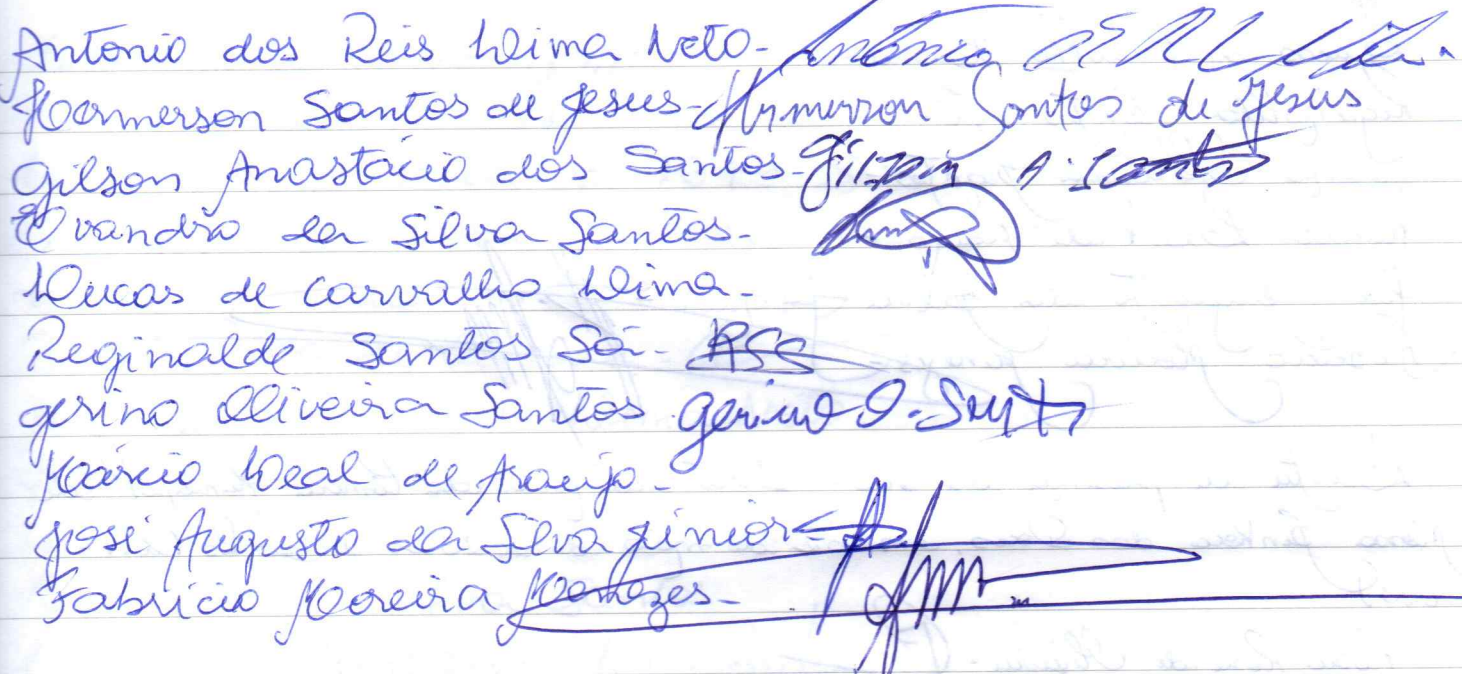 Antonio dos Reis Lima Neto- Antônio
Hermerson Santos de Jesus- Hermerson Santos de Jesus
Gilson Anastácio dos Santos- Gilson A. Santos
Evandro da Silva Santos-
Lucas de Carvalho Lima-
Reginalde Santos Sá- RSS
Gerino Oliveira Santos Gerino O. Santos
Márcio Leal de Araujo-
José Augusto da Silva Júnior-
Fabrício Moreira Menezes-